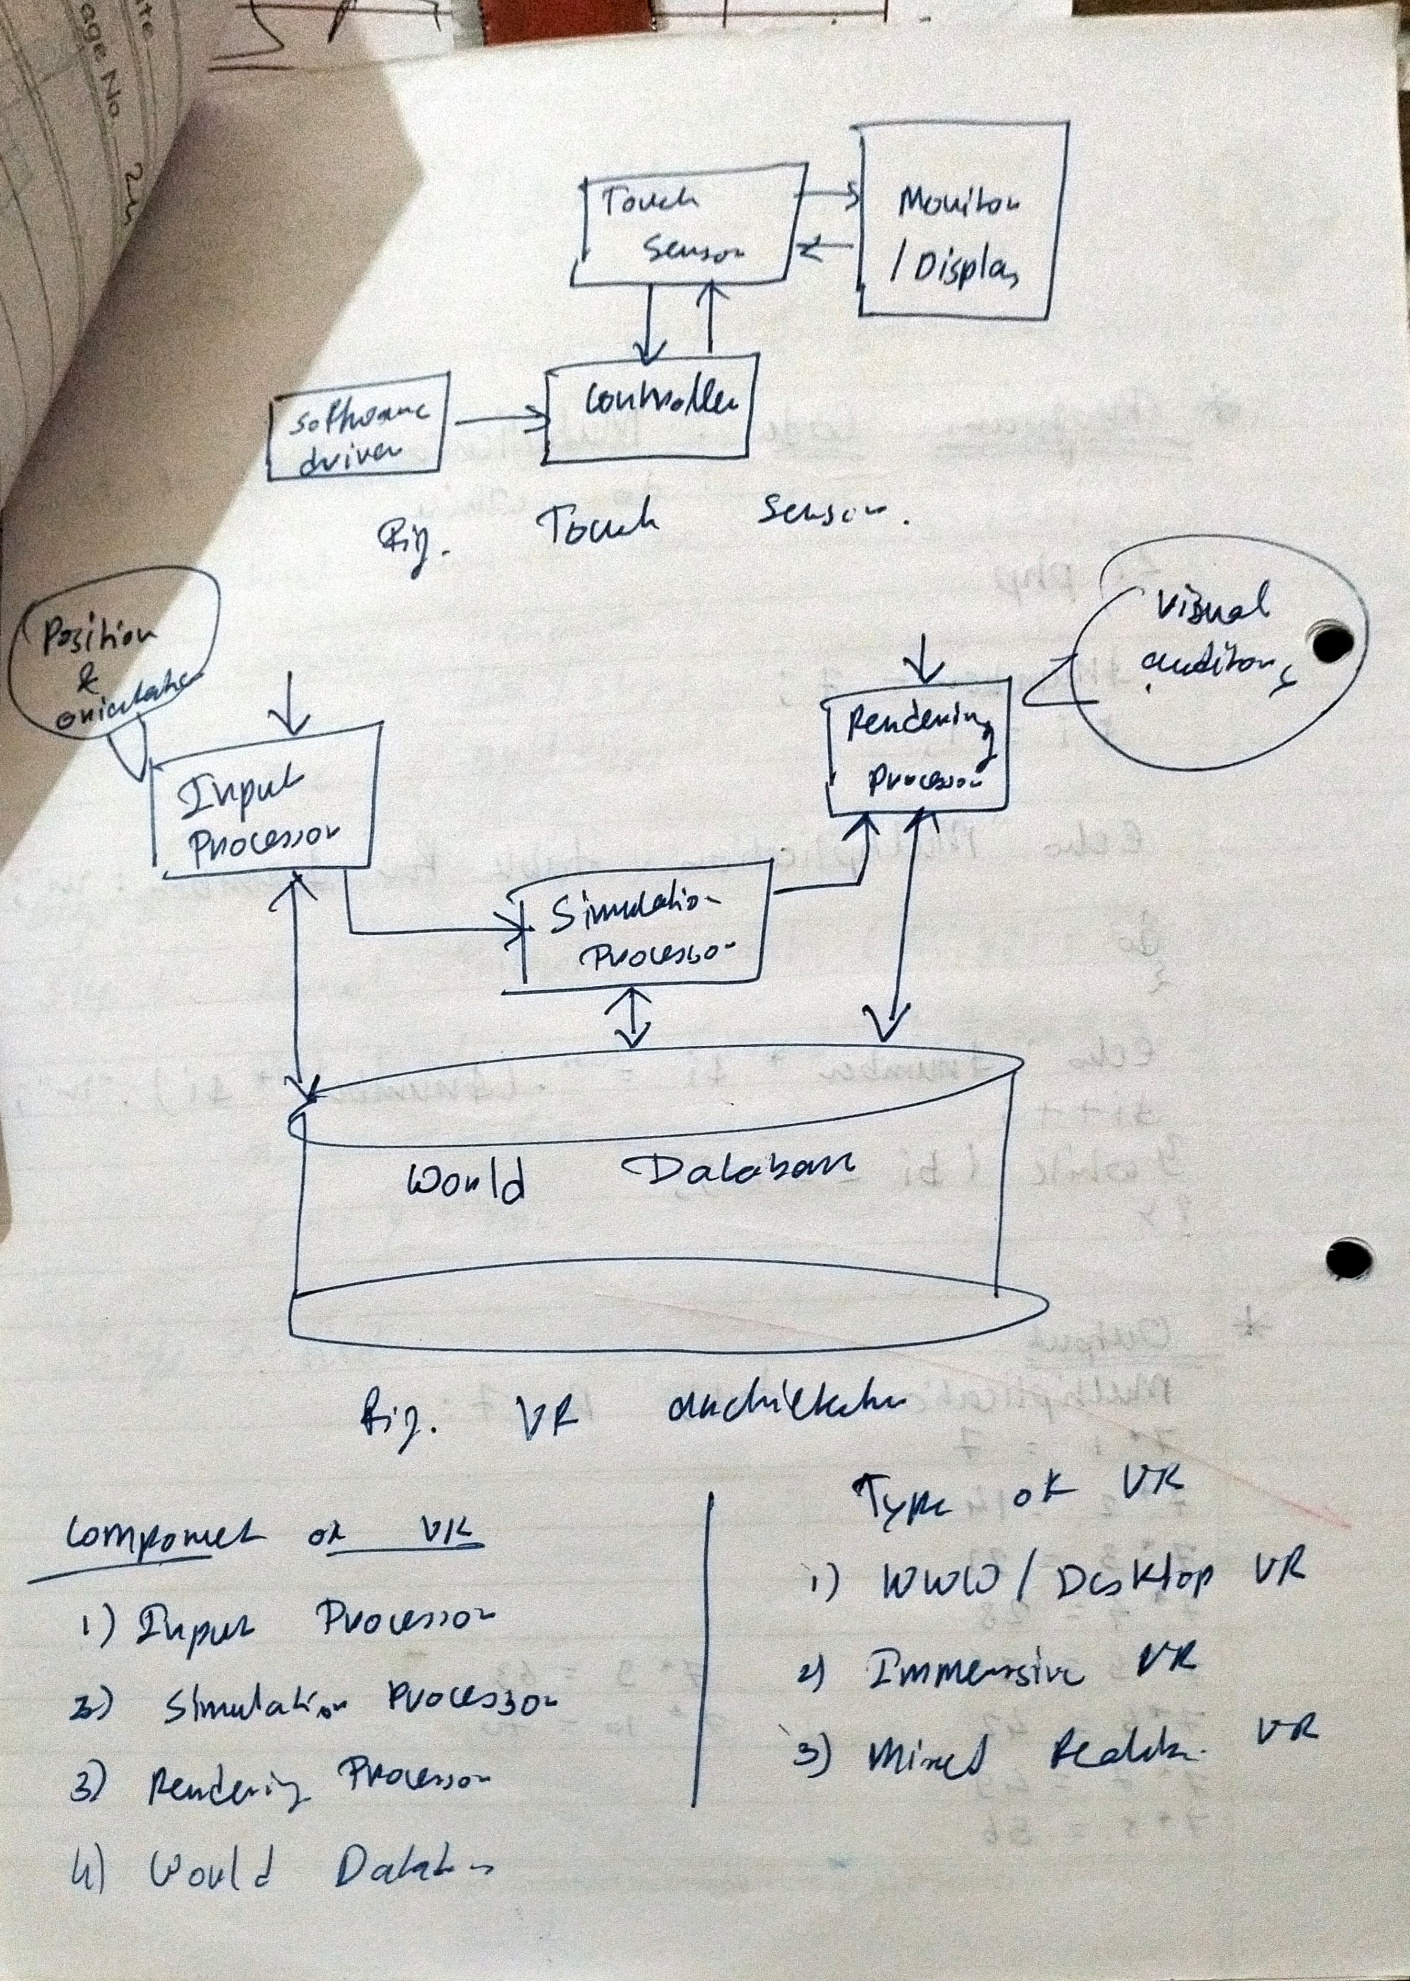 Page No. 24
Touch
Sensor
Monitor
/ Display
Software
driver
Controller
Fig. Touch Sensor.
Position
&
orientation
Input
Processor
Rendering
Processor
Visual
auditory
Simulation
Processor
World Database
Fig. VR architecture
Component of VR
1) Input Processor
2) Simulation Processor
3) Rendering Processor
4) World Database
Type of VR
1) WWW / Desktop VR
2) Immersive VR
3) Mixed Reality VR